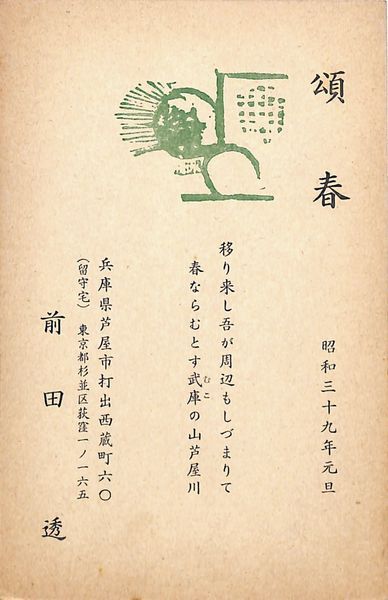 頌春
昭和三十九年元旦
移り来し吾が周辺もしづまりて
春ならむとす武庫の山芦屋川
むこ
兵庫県芦屋市打出西蔵町六〇
(留守宅) 東京都杉並区荻窪一ノ一六五
前田透